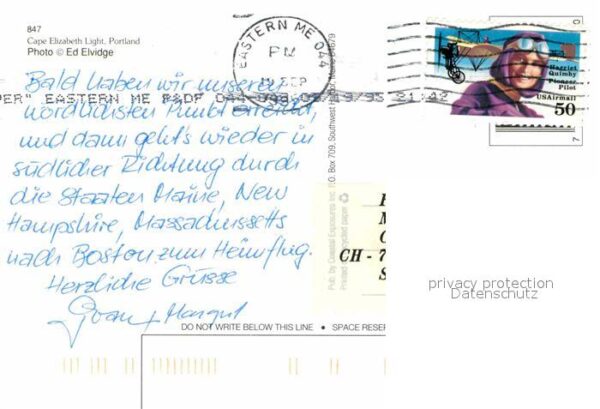 847
Cape Elizabeth Light, Portland
Photo © Ed Elvidge
EASTERN ME 044
PM
19 SEP
EASTERN ME P&DF 044
Harriet
Quimby
Pioneer
Pilot
USAirmail
50
Bald haben wir unseren
nördlichsten Punkt erreicht,
und dann geht's wieder in
südlicher Richtung durch
die Staaten Maine, New
Hampshire, Massachussetts
nach Boston zum Heimflug.
Herzliche Grüsse
+ Margrit
Pub. by Coastal Exposures Inc. P.O. Box 709, Southwest Harbor, Maine 04679
Printed on recycled paper
CH - 7
S
privacy protection
Datenschutz
DO NOT WRITE BELOW THIS LINE • SPACE RESER